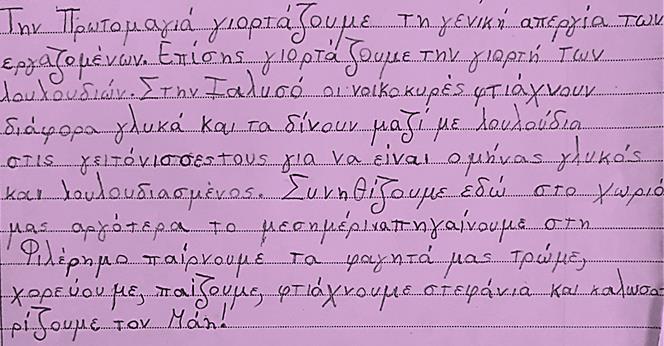 Την Πρωτομαγιά γιορτάζουμε τη γενική απεργία των
εργαζομένων. Επίσης γιορτάζουμε την γιορτή των
λουλουδιών. Στην Ιαλυσό οι νοικοκυρές φτιάχνουν
διάφορα γλυκά και τα δίνουν μαζί με λουλούδια
στις γειτόνισσες τους για να είναι ο μήνας γλυκός
και λουλουδιασμένος. Συνηθίζουμε εδώ στο χωριό
μας αργότερα το μεσημέρι να πηγαίνουμε στη
Φιλέρημο παίρνουμε τα φαγητά μας τρώμε,
χορεύουμε, παίζουμε, φτιάχνουμε στεφάνια και καλωσο
ρίζουμε τον Μάη!